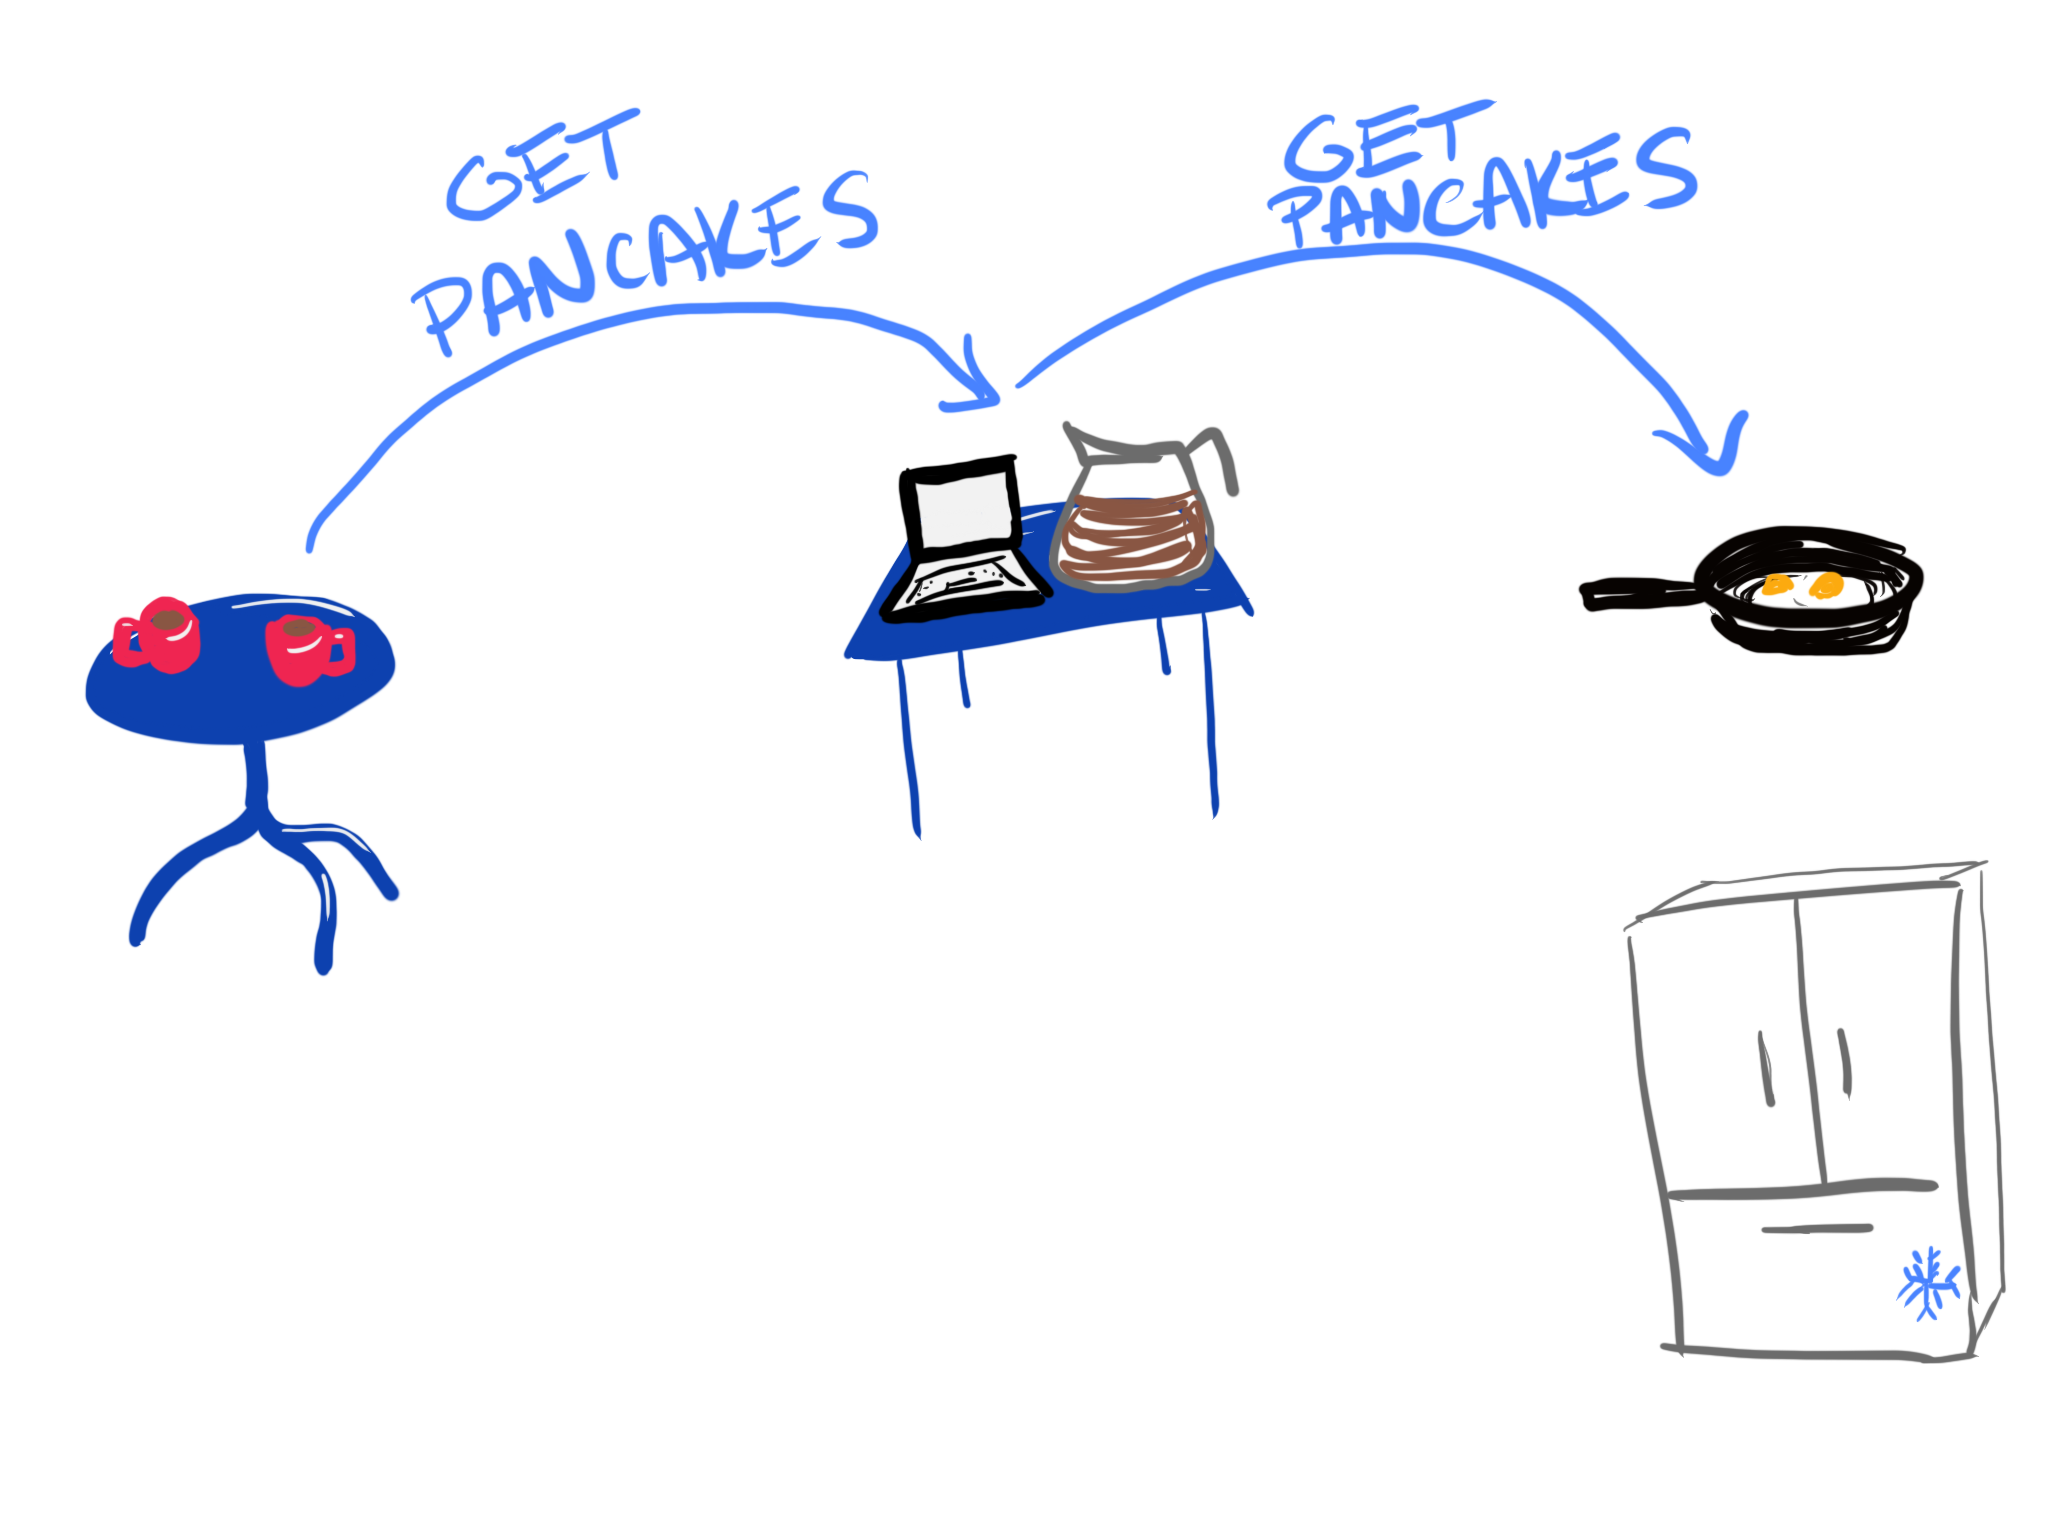 GET
PANCAKES
GET
PANCAKES